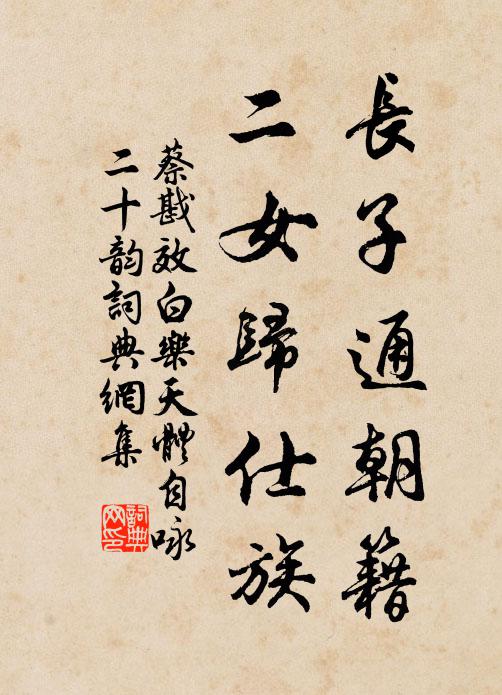 長子通朝籍
二女歸仕族
蔡戡效白樂天體自咏
二十韵詞典網集
詞典
网印